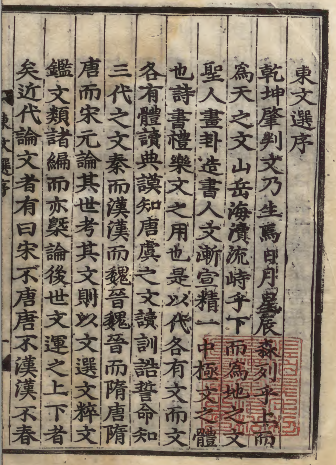 東文選序
乾坤肇判文乃生焉日月星辰森列乎上而
爲天之文山岳海瀆流峙乎下而爲地之文
聖人畫卦造書人文漸宣精一中極文之體
也詩書禮樂文之用也是以代各有文而文
各有體讀典謨知唐虞之文讀訓誥誓命知
三代之文秦而漢漢而魏晉魏晉而隋唐隋
唐而宋元論其世考其文則以文選文粹文
鑑文類諸編而亦槩論後世文運之上下者
矣近代論文者有曰宋不唐唐不漢漢不春
東文選序